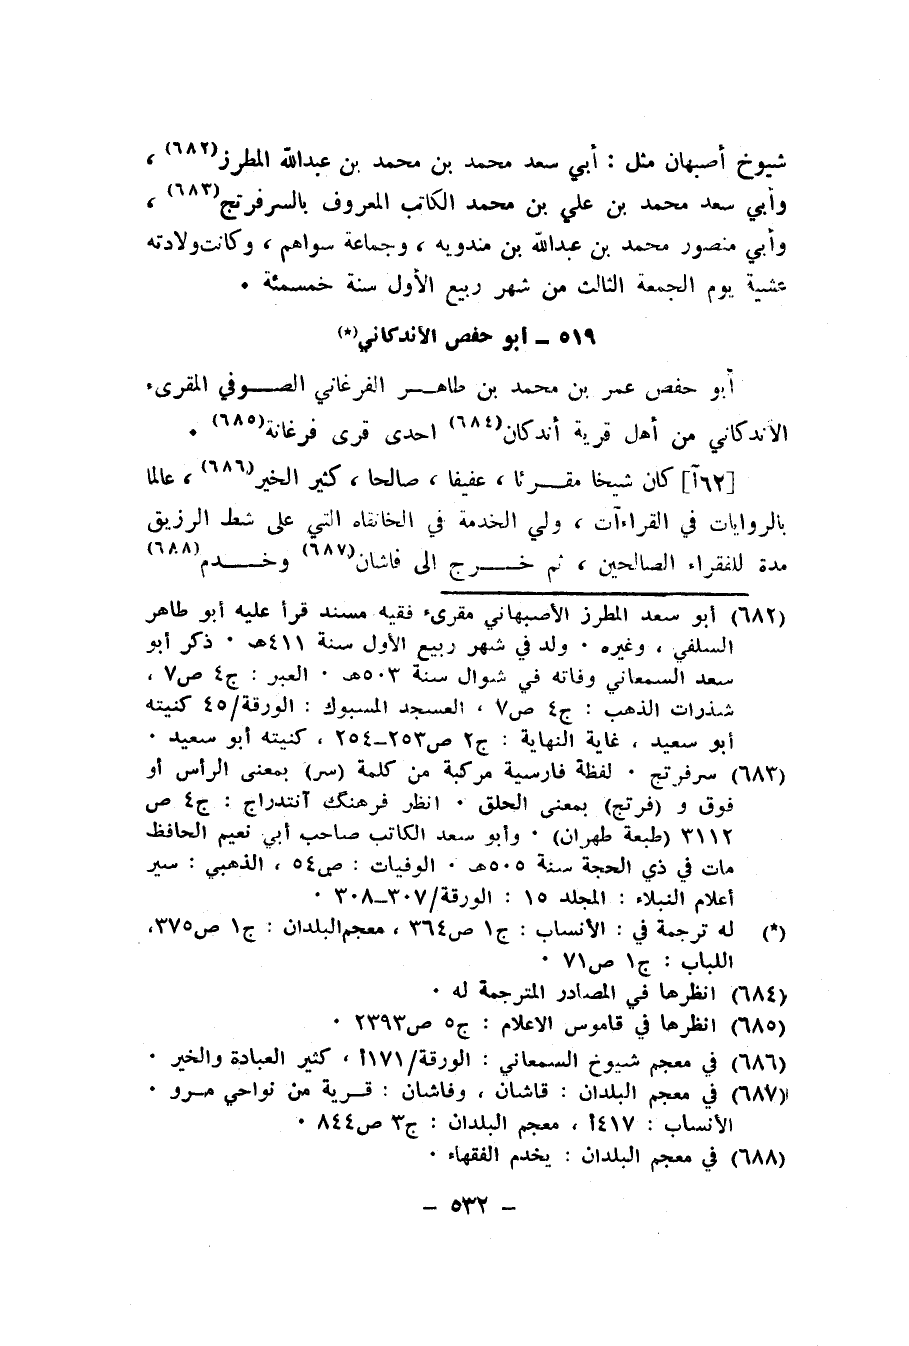 شيوخ أصبهان مثل : أبي سعد محمد بن محمد بن عبدالله المطرز(٦٨٢) ،
وأبي سعد محمد بن علي بن محمد الكاتب المعروف بالسرفرتج(٦٨٣) ،
وأبي منصور محمد بن عبدالله بن مندويه ، وجماعة سواهم ، وكانت ولادته
عشية يوم الجمعة الثالث من شهر ربيع الأول سنة خمسمئة ٠
٥١٩ ــ أبو حفص الأندكاني(*)
أبو حفص عمر بن محمد بن طاهر الفرغاني الصوفي المقرىء
الاندكاني من أهل قرية أندكان(٦٨٤) احدى قرى فرغانة(٦٨٥) ٠
[٦٢آ] كان شيخا مقرئا ، عفيفا ، صالحا ، كثير الخير(٦٨٦) ، عالما
بالروايات في القراءآت ، ولي الخدمة في الخانقاه التي على شط الرزيق
مدة للفقراء الصالحين ، ثم خرج الى فاشان(٦٨٧) وخدم(٦٨٨)
(٦٨٢) أبو سعد المطرز الأصبهاني مقرىء فقيه مسند قرأ عليه أبو طاهر
السلفي ، وغيره ٠ ولد في شهر ربيع الأول سنة ٤١١هـ ٠ ذكر أبو
سعد السمعاني وفاته في شوال سنة ٥٠٣هـ ٠ العبر : ج٤ ص٧ ،
شذرات الذهب : ج٤ ص٧ ، العسجد المسبوك : الورقة/٤٥ كنيته
أبو سعيد ، غاية النهاية : ج٢ ص٢٥٣ــ٢٥٤ ، كنيته أبو سعيد ٠
(٦٨٣) سرفرتج ٠ لفظة فارسية مركبة من كلمة (سر) بمعنى الرأس أو
فوق و (فرتج) بمعنى الحلق ٠ انظر فرهنگ آنندراج : ج٤ ص
٣١١٢ (طبعة طهران) ٠ وأبو سعد الكاتب صاحب أبي نعيم الحافظ
مات في ذي الحجة سنة ٥٠٥هـ ٠ الوفيات : ص٥٤ ، الذهبي : سير
أعلام النبلاء : المجلد ١٥ : الورقة/٣٠٧ــ٣٠٨ ٠
(*) له ترجمة في : الأنساب : ج١ ص٣٦٤ ، معجم البلدان : ج١ ص٣٧٥،
اللباب : ج١ ص٧١ ٠
(٦٨٤) انظرها في المصادر المترجمة له ٠
(٦٨٥) انظرها في قاموس الاعلام : ج٥ ص٢٣٩٣ ٠
(٦٨٦) في معجم شيوخ السمعاني : الورقة/١٧١أ ، كثير العبادة والخير ٠
(٦٨٧) في معجم البلدان : قاشان ، وفاشان : قرية من نواحي مرو ٠
الأنساب : ٤١٧أ ، معجم البلدان : ج٣ ص٨٤٤ ٠
(٦٨٨) في معجم البلدان : يخدم الفقهاء ٠
ــ ٥٣٢ ــ